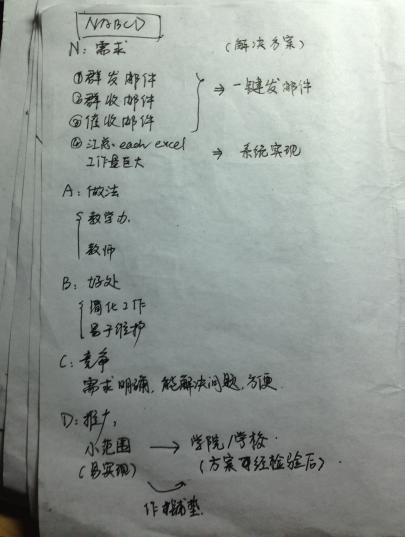 NABCD
N: 需求 (解决方案)
①群发邮件
②群收邮件 ⇒ 一键发邮件
③催收邮件
④汇总 each excel ⇒ 系统实现
工作量巨大
A: 做法
教学办
教师
B: 好处
简化工作
易于维护
C: 竞争
需求明确,能解决问题,方便.
D: 推广
小范围 → 学院/学校.
(易实现) (方案可经检验后).
作铺垫.